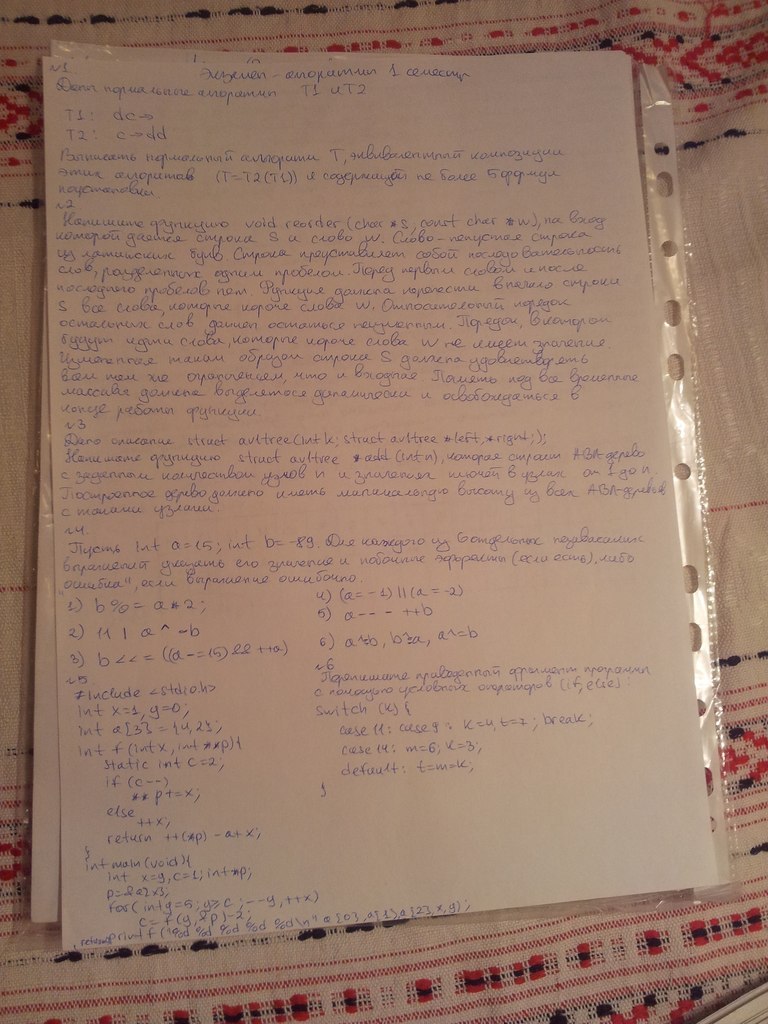 Экзамен - алгоритмы 1 семестр
№1.
Даны нормальные алгоритмы T1 и T2
T1: dc→
T2: c→dd
Выписать нормальный алгоритм T, эквивалентный композиции
этих алгоритмов (T=T2(T1)) и содержащий не более 5 формул
подстановки.
№2
Напишите функцию void reorder (char *S, const char *w), на вход
которой даётся строка S и слово w. Слово - непустая строка
из латинских букв. Строка представляет собой последовательность
слов, разделенных одним пробелом. Перед первым словом и после
последнего пробелов нет. Функция должна перенести в начало строки
S все слова, которые короче слова w. Относительный порядок
остальных слов должен остаться неизменным. Порядок, в котором
будут идти слова, которые короче слова w не имеет значение.
Измененная таким образом строка S должна удовлетворять
всем тем же ограничением, что и входная. Память под все временные
массивы должна выделяться динамически и освобождаться в
конце работы функции.
№3
Дано описание struct avltree {int k; struct avltree *left, *right;};
Напишите функцию struct avltree *add (int n), которая строит АВЛ-дерево
с заданным количеством узлов n и значением ключей в узлах от 1 до n.
Построенное дерево должно иметь высоту из всех АВЛ-деревьев
с такими узлами.
№4.
Пусть int a=15; int b=-89. Для каждого из 6 отдельных независимых
выражений указать его значение и побочные эффекты (если есть), либо
"ошибка", если выражение ошибочно.
1) b %= a * 2;
2) 11 | a ^ ~b
3) b <<= ((a-=15) && ++a)
4) (a=-1) || (a=-2)
5) a - - - ++b
6) a^=b, b^=a, a^=b
№5
#include <stdio.h>
int x=1, y=0;
int a[3] = {4,2};
int f (int x, int **p){
static int c=2;
if (c--)
** p+=x;
else
++x;
return ++(*p) - a+x;
}
int main(void){
int x=y, c=1; int *p;
p=&a[x];
for( int y=5; y>c; --y, ++x)
c= f(y, &p)-2;
printf ("%d %d %d %d %d\n" a[0], a[1], a[2], x, y);
№6
Перепишите приведенный фрагмент программы
с помощью условных операторов (if, else):
switch (k) {
case 11: case 9: k=4, t=7; break;
case 14: m=6, k=3;
default: t=m=k;
}